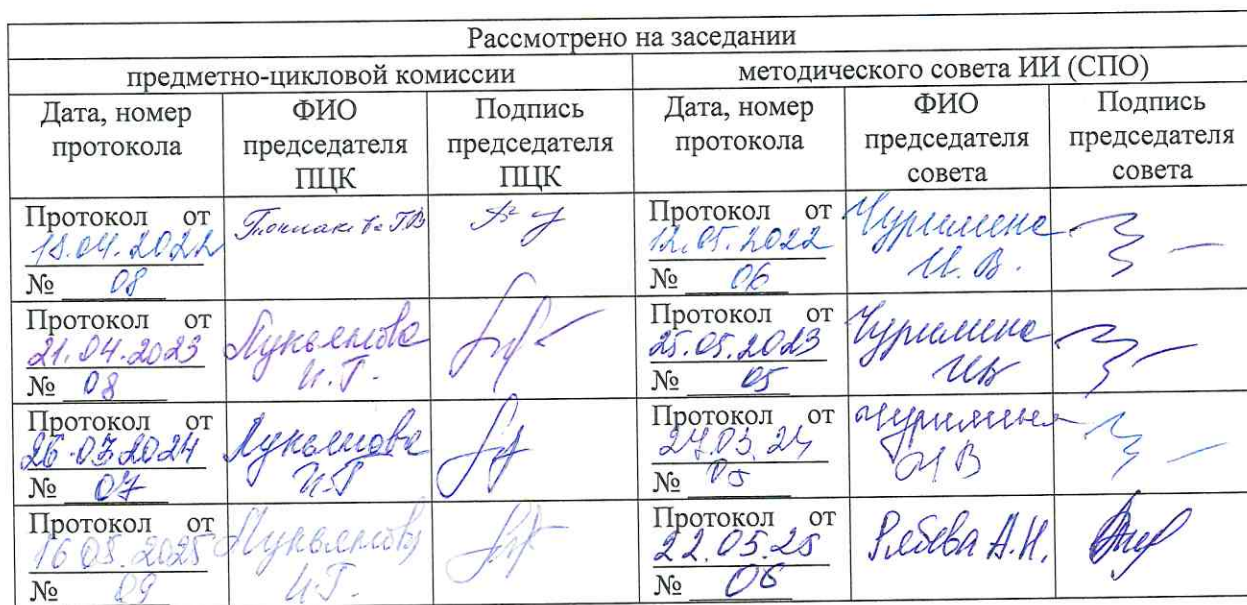 Рассмотрено на заседании
предметно-цикловой комиссии
методического совета ИИ (СПО)
Дата, номер
протокола
ФИО
председателя
ПЦК
Подпись
председателя
ПЦК
Дата, номер
протокола
ФИО
председателя
совета
Подпись
председателя
совета
Протокол от
18.04.2022
№ 08
Протокол от
12.05.2022
№ 06
Чурилина
И.В.
Протокол от
21.04.2023
№ 08
Лукьянова
И.Г.
Протокол от
25.05.2023
№ 05
Чурилина
ИВ
Протокол от
№ 07
Лукьянова
И.Г
Протокол от
№ 05
Чурилина
И В
Протокол от
16 05. 2025
№ 09
Лукьянова
И.Г.
Протокол от
22.05.25
№ 06
А.Н.